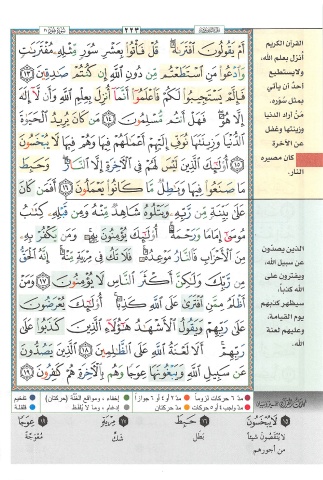 ٢٢٣
أَمْ يَقُولُونَ ٱفْتَرَىٰهُ ۖ قُلْ فَأْتُوا۟ بِعَشْرِ سُوَرٍ مِّثْلِهِۦ مُفْتَرَيَـٰتٍ
وَٱدْعُوا۟ مَنِ ٱسْتَطَعْتُم مِّن دُونِ ٱللَّهِ إِن كُنتُمْ صَـٰدِقِينَ ﴿١٣﴾
فَإِلَّمْ يَسْتَجِيبُوا۟ لَكُمْ فَٱعْلَمُوٓا۟ أَنَّمَآ أُنزِلَ بِعِلْمِ ٱللَّهِ وَأَن لَّآ إِلَـٰهَ
إِلَّا هُوَ ۖ فَهَلْ أَنتُم مُّسْلِمُونَ ﴿١٤﴾ مَن كَانَ يُرِيدُ ٱلْحَيَوٰةَ
ٱلدُّنْيَا وَزِينَتَهَا نُوَفِّ إِلَيْهِمْ أَعْمَـٰلَهُمْ فِيهَا وَهُمْ فِيهَا لَا يُبْخَسُونَ
﴿١٥﴾ أُو۟لَـٰٓئِكَ ٱلَّذِينَ لَيْسَ لَهُمْ فِى ٱلْـَٔاخِرَةِ إِلَّا ٱلنَّارُ ۖ وَحَبِطَ
مَا صَنَعُوا۟ فِيهَا وَبَـٰطِلٌ مَّا كَانُوا۟ يَعْمَلُونَ ﴿١٦﴾ أَفَمَن كَانَ
عَلَىٰ بَيِّنَةٍ مِّن رَّبِّهِۦ وَيَتْلُوهُ شَاهِدٌ مِّنْهُ وَمِن قَبْلِهِۦ كِتَـٰبُ
مُوسَىٰٓ إِمَامًا وَرَحْمَةً ۚ أُو۟لَـٰٓئِكَ يُؤْمِنُونَ بِهِۦ ۚ وَمَن يَكْفُرْ بِهِۦ
مِنَ ٱلْأَحْزَابِ فَٱلنَّارُ مَوْعِدُهُۥ ۚ فَلَا تَكُ فِى مِرْيَةٍ مِّنْهُ ۚ إِنَّهُ ٱلْحَقُّ
مِن رَّبِّكَ وَلَـٰكِنَّ أَكْثَرَ ٱلنَّاسِ لَا يُؤْمِنُونَ ﴿١٧﴾ وَمَنْ
أَظْلَمُ مِمَّنِ ٱفْتَرَىٰ عَلَى ٱللَّهِ كَذِبًا ۚ أُو۟لَـٰٓئِكَ يُعْرَضُونَ
عَلَىٰ رَبِّهِمْ وَيَقُولُ ٱلْأَشْهَـٰدُ هَـٰٓؤُلَآءِ ٱلَّذِينَ كَذَبُوا۟ عَلَىٰ
رَبِّهِمْ ۚ أَلَا لَعْنَةُ ٱللَّهِ عَلَى ٱلظَّـٰلِمِينَ ﴿١٨﴾ ٱلَّذِينَ يَصُدُّونَ
عَن سَبِيلِ ٱللَّهِ وَيَبْغُونَهَا عِوَجًا وَهُم بِٱلْـَٔاخِرَةِ هُمْ كَـٰفِرُونَ ﴿١٩﴾
القرآن الكريم
أنزل بعلم الله،
ولا يستطيع
أحدٌ أن يأتي
بمثل سُوَره.
مَنْ أراد الدنيا
وزينتها وغفل
عن الآخرة
كان مصيره
النار.
الذين يصدّون
عن سبيل الله،
ويفترون على
الله كذباً،
سيظهر كذبهم
يوم القيامة،
وعليهم لعنة
الله.
مدّ ٦ حركات لزوماً مدّ ٢ أو ٤ أو ٦ جوازاً إخفاء، ومواقع الغُنَّة (حركتان) تفخيم
مدّ واجب ٤ أو ٥ حركات مدّ حركتان إدغام، وما لا يُلفَظ قلقلة
١٥ لَا يُبْخَسُونَ ١٦ حَبِطَ ١٧ مِرْيَةٍ ١٩ عِوَجًا
لا يُنْقَصُونَ شيئاً بَطَلَ شَكٍّ مُعْوَجَّةً
من أجورهم